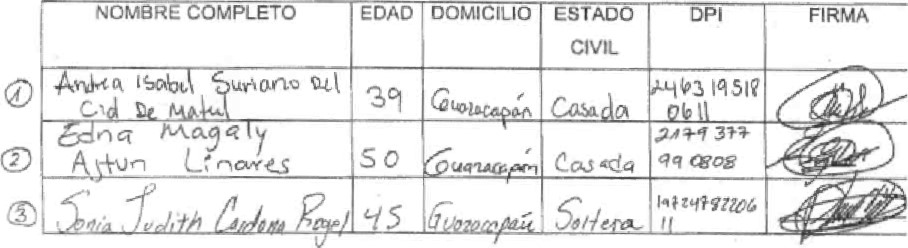 NOMBRE COMPLETO EDAD DOMICILIO ESTADO CIVIL DPI FIRMA
① Andrea Isabel Suriano Del Cid De Matul 39 Guazacapán Casada 2463 19518 0611
② Edna Magaly Ajtun Linares 50 Guazacapán Casada 2179 377 99 0808
③ Sonia Judith Cardona Rogel 45 Guazacapán Soltera 19724782206 11